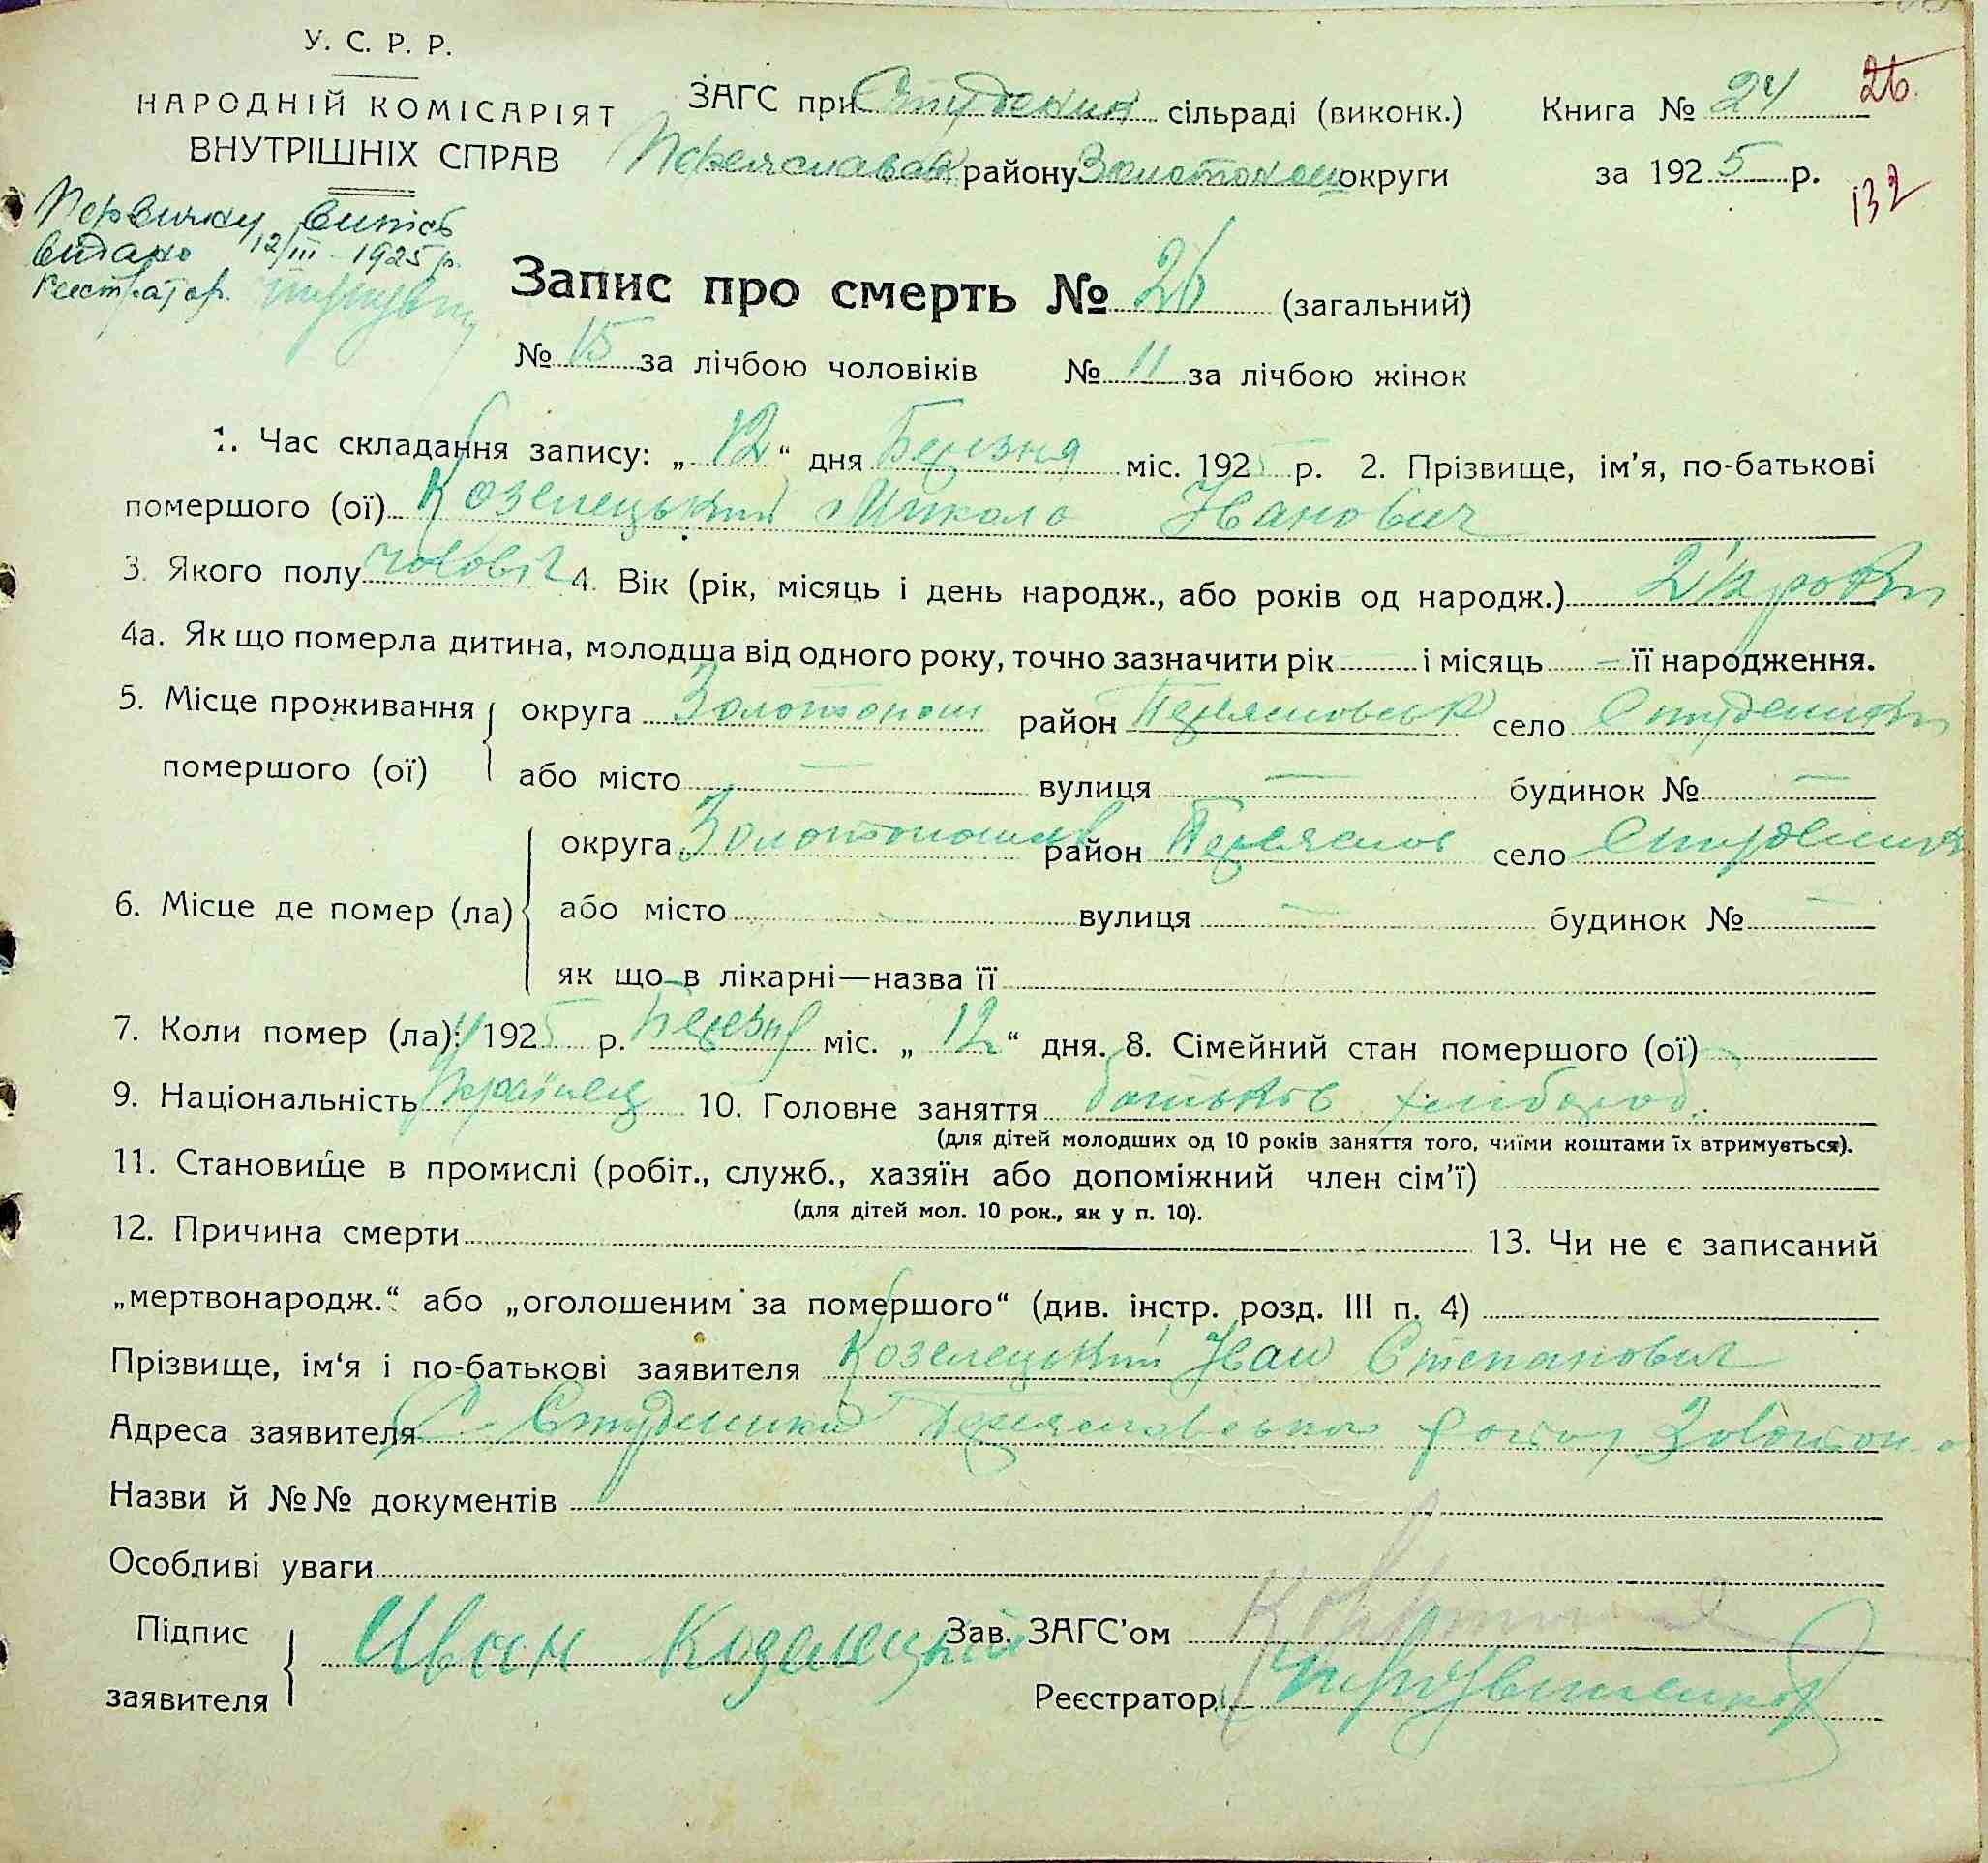 У. С. Р. Р.
НАРОДНІЙ КОМІСАРІЯТ
ВНУТРІШНІХ СПРАВ
ЗАГС при Студеник сільраді (виконк.)
Переяславськ району Золотонош округи
Книга № 24 26
за 1925 р. 132
Первичну випись
видано 12/III 1925 р.
Реєстратор.
Запис про смерть № 26 (загальний)
№ 15 за лічбою чоловіків № 11 за лічбою жінок
1. Час складання запису: „ 12 “ дня Березня міс. 1925 р. 2. Прізвище, ім’я, по-батькові
помершого (ої) Козелецький Микола Іванович
3. Якого полу чоловіч 4. Вік (рік, місяць і день народж., або років од народж.) 2½
4а. Як що померла дитина, молодша від одного року, точно зазначити рік — і місяць — її народження.
5. Місце проживання округа Золотонош район Переяславськ село Студеники
помершого (ої) або місто — вулиця — будинок № —
округа Золотоношськ район Переяслов село Студеники
6. Місце де помер (ла) або місто — вулиця — будинок № —
як що в лікарні—назва її
7. Коли помер (ла): 1925 р. Березня міс. „ 12 “ дня. 8. Сімейний стан помершого (ої) —
9. Національність Українец 10. Головне заняття батьків хлібороб.
(для дітей молодших од 10 років заняття того, чиїми коштами їх втримується).
11. Становище в промислі (робіт., служб., хазяїн або допоміжний член сім’ї)
(для дітей мол. 10 рок., як у п. 10).
12. Причина смерти 13. Чи не є записаний
„мертвонародж.“ або „оголошеним за помершого“ (див. інстр. розд. III п. 4)
Прізвище, ім‘я і по-батькові заявителя Козелецький Іван Степанович
Адреса заявителя С. Студеники Переяславського району Золотон
Назви й №№ документів
Особливі уваги
Підпис Иван Козелецкий Зав. ЗАГС’ом
заявителя Реєстратор